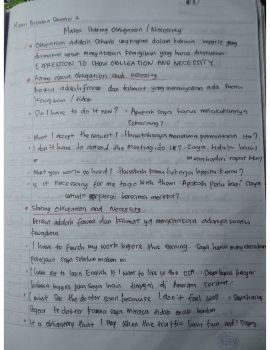 Materi Stating Obligation / Necessity
• Obligation adalah sebuah ungkapan dalam bahasa Inggris yang
digunakan untuk menyatakan kewajiban yang harus dilakukan
EXPRESSION TO SHOW OBLIGATION AND NECESSITY.
• Asking about obligation and necessity
berisi adalah frasa dan kalimat yang menanyakan ada
kewajiban / tidak
• Do I have to do it now? : Apakah saya harus melakukannya
Sekarang?
• Must I accept the request? : Haruskah saya menerima permintaan itu?
• I don't have to attend the meeting, do I? : Saya tidak harus
menghadiri rapat
• Must you work so hard? : Haruskah kamu bekerja begitu keras?
• Is it necessary for me to go with them? Apakah perlu bagi saya
untuk pergi bersama mereka?
• Stating Obligation and Necessity
berisi adalah frasa dan kalimat yg menyatakan adanya suatu
kewajiban
I have to finish my work before this evening. Saya harus menyelesaikan
pekerjaan saya sebelum malam ini
to learn English if I want to live in the USA : Saya harus belajar
bahasa Inggris jika saya ingin tinggal di Amerika serikat.
I must see the doctor soon because I don't feel well : Saya harus
segera ke dokter karena saya merasa tidak enak badan
It is obligatory that I stop when the traffic turn red : Saya